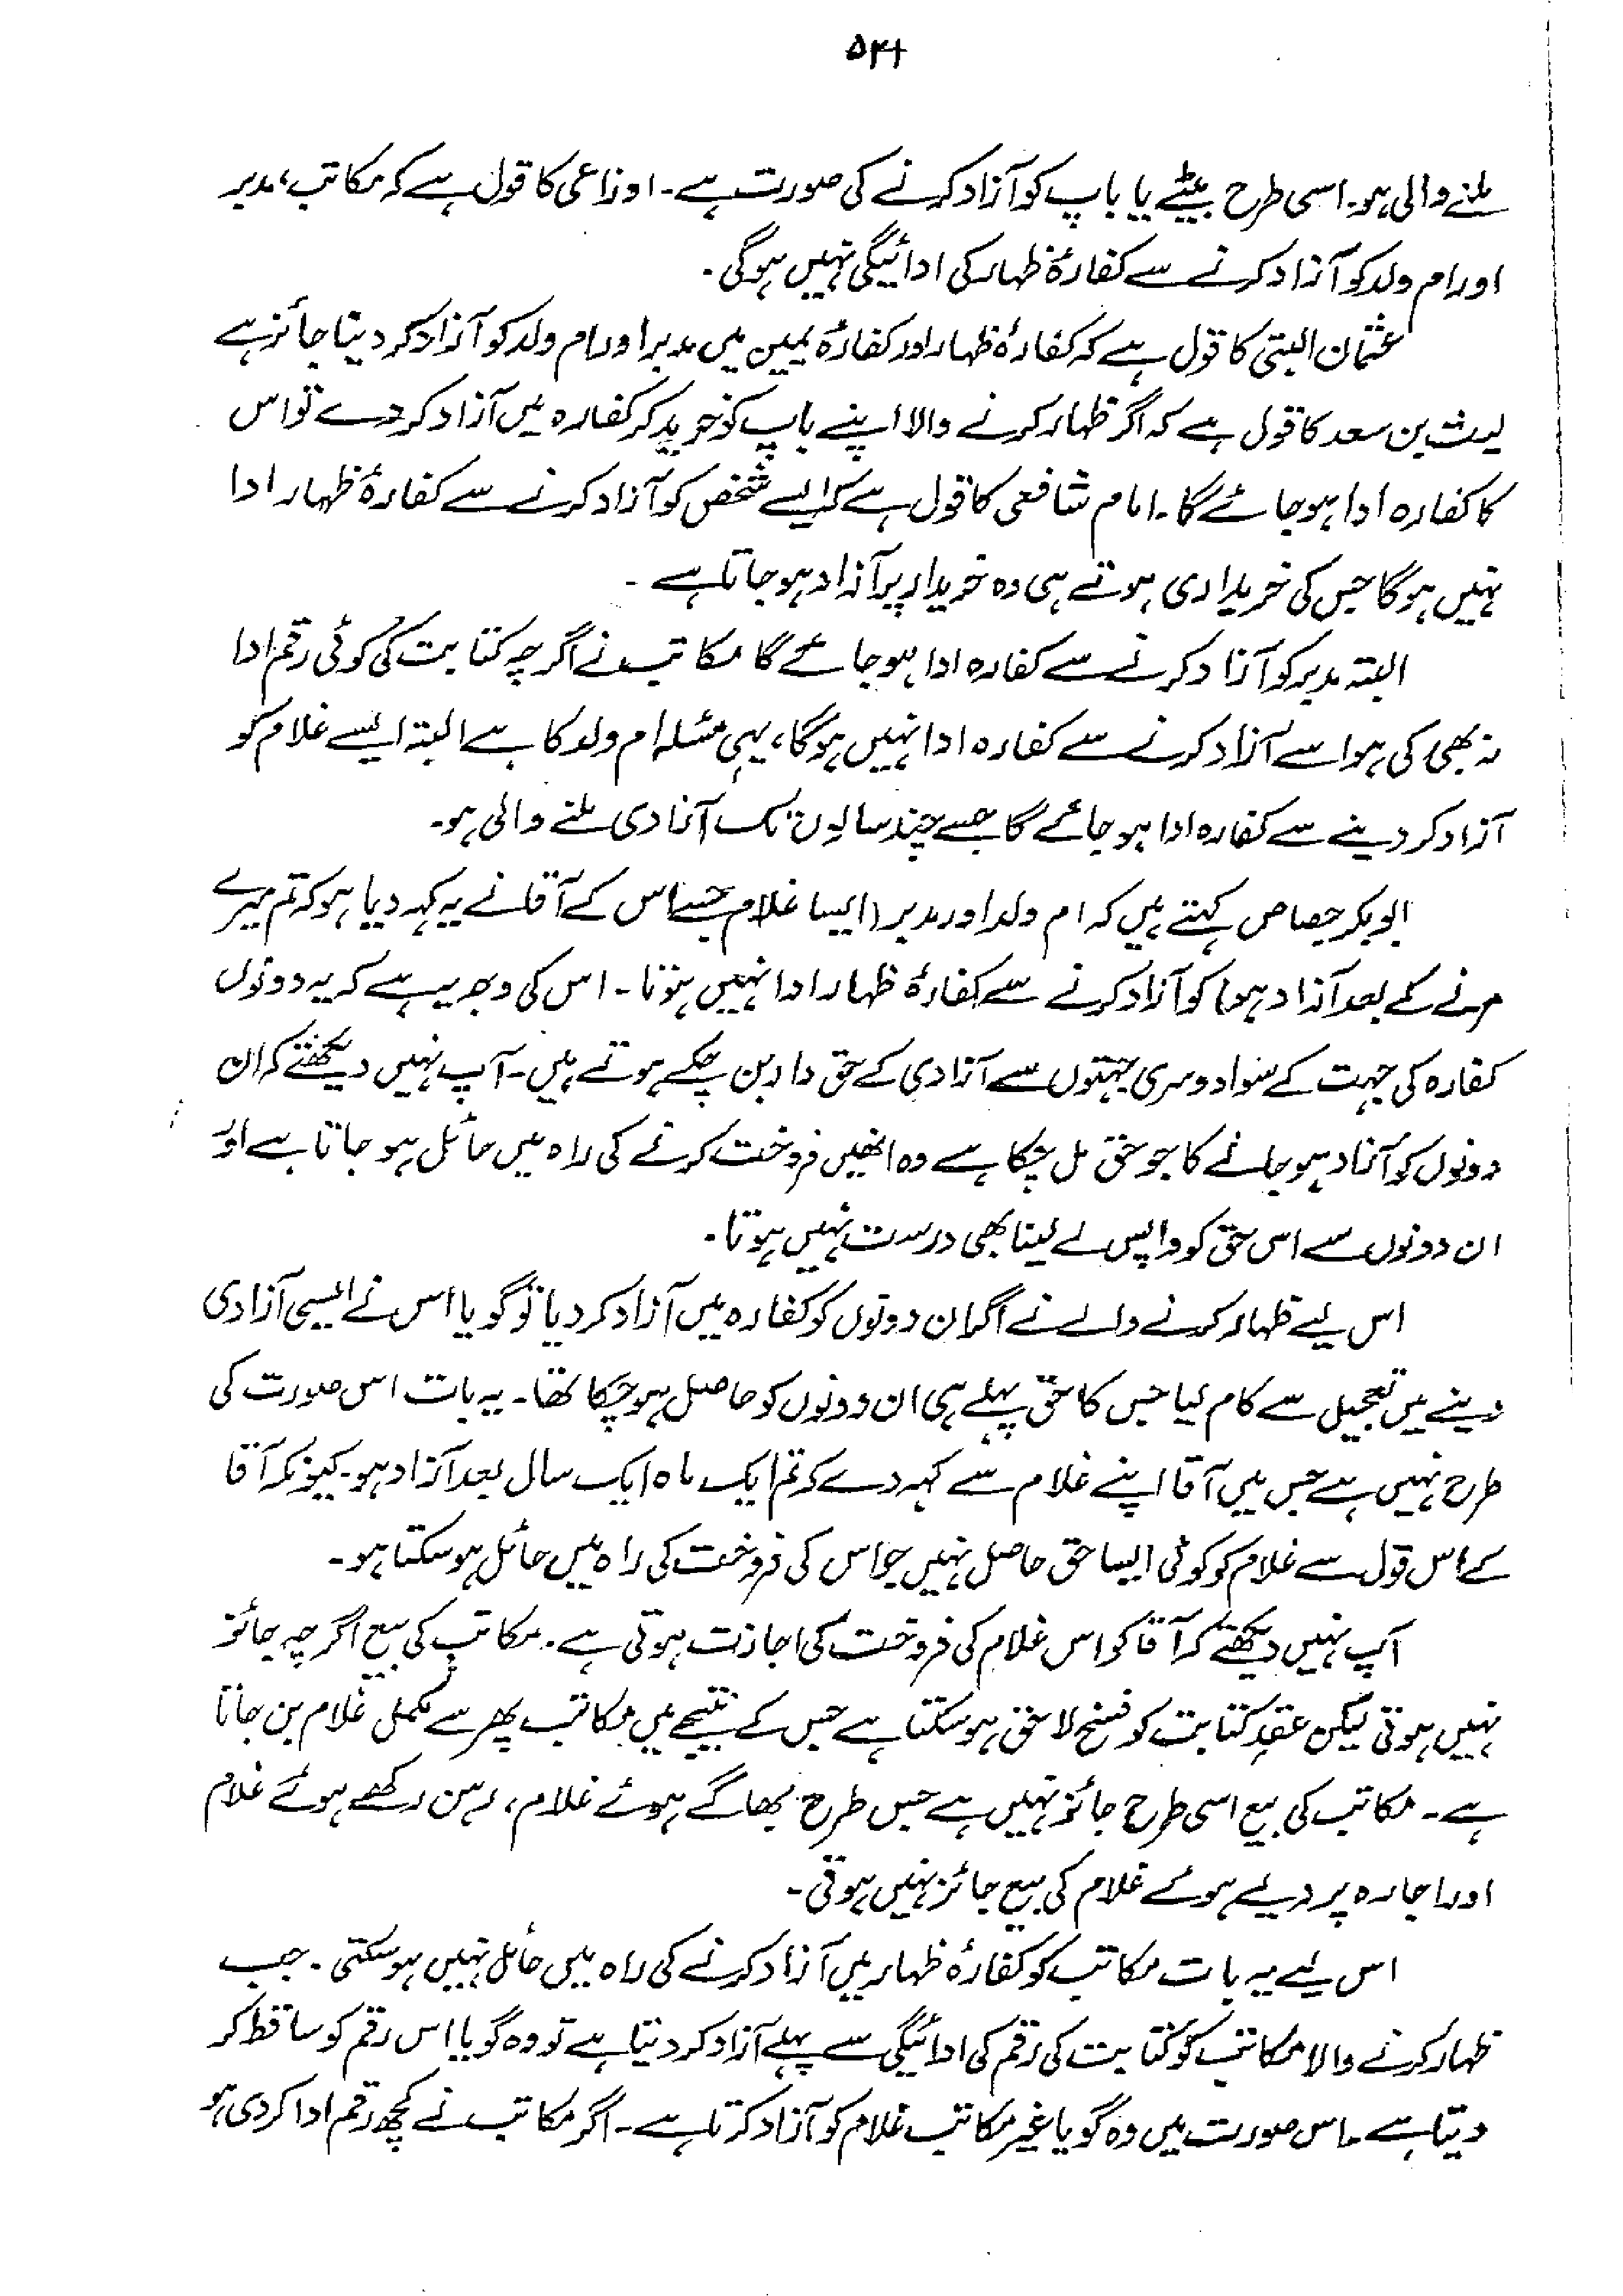 ۵۴۱
ملنے والی ہو۔ اسی طرح بیٹے یا باپ کو آزاد کرنے کی صورت ہے۔ اوزاعی کا قول ہے کہ مکاتب، مدبر
اور ام ولد کو آزاد کرنے سے کفارۂ ظہار کی ادائیگی نہیں ہوگی۔
عثمان البتی کا قول ہے کہ کفارۂ ظہار اور کفارۂ یمین میں مدبر اور ام ولد کو آزاد کر دینا جائز ہے
لیث بن سعد کا قول ہے کہ اگر ظہار کرنے والا اپنے باپ کو خرید کر کفارہ میں آزاد کر دے تو اس
کا کفارہ ادا ہو جائے گا۔ امام شافعی کا قول ہے کہ ایسے شخص کو آزاد کرنے سے کفارۂ ظہار ادا
نہیں ہوگا جس کی خریداری ہوتے ہی وہ خریدار پر آزاد ہو جاتا ہے۔
البتہ مدبر کو آزاد کرنے سے کفارہ ادا ہو جائے گا مکاتب نے اگرچہ کتابت کی کوئی رقم ادا
نہ بھی کی ہو اسے آزاد کرنے سے کفارہ ادا نہیں ہوگا، یہی مسئلہ ام ولد کا ہے البتہ ایسے غلام کو
آزاد کر دینے سے کفارہ ادا ہو جائے گا جسے چند سالوں تک آزادی ملنے والی ہو۔
ابوبکر جصاص کہتے ہیں کہ ام ولد اور مدبر (ایسا غلام جسے اس کے آقا نے یہ کہہ دیا ہو کہ تم میرے
مرنے کے بعد آزاد ہو) کو آزاد کرنے سے کفارۂ ظہار ادا نہیں ہوتا۔ اس کی وجہ یہ ہے کہ یہ دونوں
کفارہ کی جہت کے سوا دوسری جہتوں سے آزادی کے حق دار بن چکے ہوتے ہیں۔ آپ نہیں دیکھتے کہ ان
دونوں کو آزاد ہو جانے کا جو حق مل چکا ہے وہ انھیں فروخت کرنے کی راہ میں حائل ہو جاتا ہے اور
ان دونوں سے اس حق کو واپس لے لینا بھی درست نہیں ہوتا۔
اس لیے ظہار کرنے والے نے اگر ان دونوں کو کفارہ میں آزاد کر دیا تو گویا اس نے ایسی آزادی
دینے میں تعجیل سے کام لیا جس کا حق پہلے ہی ان دونوں کو حاصل ہو چکا تھا۔ یہ بات اس صورت کی
طرح نہیں ہے جس میں آقا اپنے غلام سے کہہ دے کہ تم ایک ماہ ایک سال بعد آزاد ہو۔ کیونکہ آقا
کے اس قول سے غلام کو کوئی ایسا حق حاصل نہیں جو اس کی فروخت کی راہ میں حائل ہو سکتا ہو۔
آپ نہیں دیکھتے کہ آقا کو اس غلام کی فروخت کی اجازت ہوتی ہے۔ مکاتب کی بیع اگرچہ جائز
نہیں ہوتی لیکن عقدِ کتابت کو فسخ لاحق ہو سکتا ہے جس کے نتیجے میں مکاتب پھر سے مکمل غلام بن جاتا
ہے۔ مکاتب کی بیع اسی طرح جائز نہیں ہے جس طرح بھاگے ہوئے غلام، رہن رکھے ہوئے غلام
اور اجارہ پر دیے ہوئے غلام کی بیع جائز نہیں ہوتی۔
اس لیے یہ بات مکاتب کو کفارۂ ظہار میں آزاد کرنے کی راہ میں حائل نہیں ہو سکتی۔ جب
ظہار کرنے والا مکاتب کو کتابت کی رقم کی ادائیگی سے پہلے آزاد کر دیتا ہے تو وہ گویا اس رقم کو ساقط کر
دیتا ہے۔ اس صورت میں وہ گویا غیر مکاتب غلام کو آزاد کرتا ہے۔ اگر مکاتب نے کچھ رقم ادا کر دی ہو